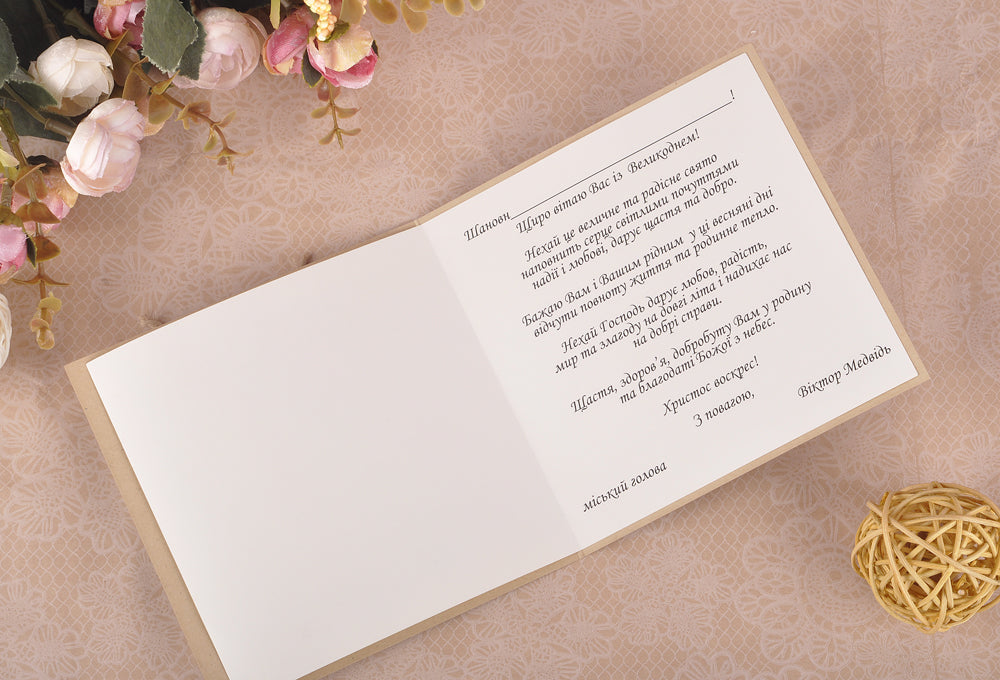 Шановн____________________!
Щиро вітаю Вас із Великоднем!
Нехай це величне та радісне свято
наповнить серце світлими почуттями
надії і любові, дарує щастя та добро.
Бажаю Вам і Вашим рідним у ці весняні дні
відчути повноту життя та родинне тепло.
Нехай Господь дарує любов, радість,
мир та злагоду на довгі літа і надихає нас
на добрі справи.
Щастя, здоров'я, добробуту Вам у родину
та благодаті Божої з небес.
Христос воскрес!
З повагою,
міський голова
Віктор Медвідь